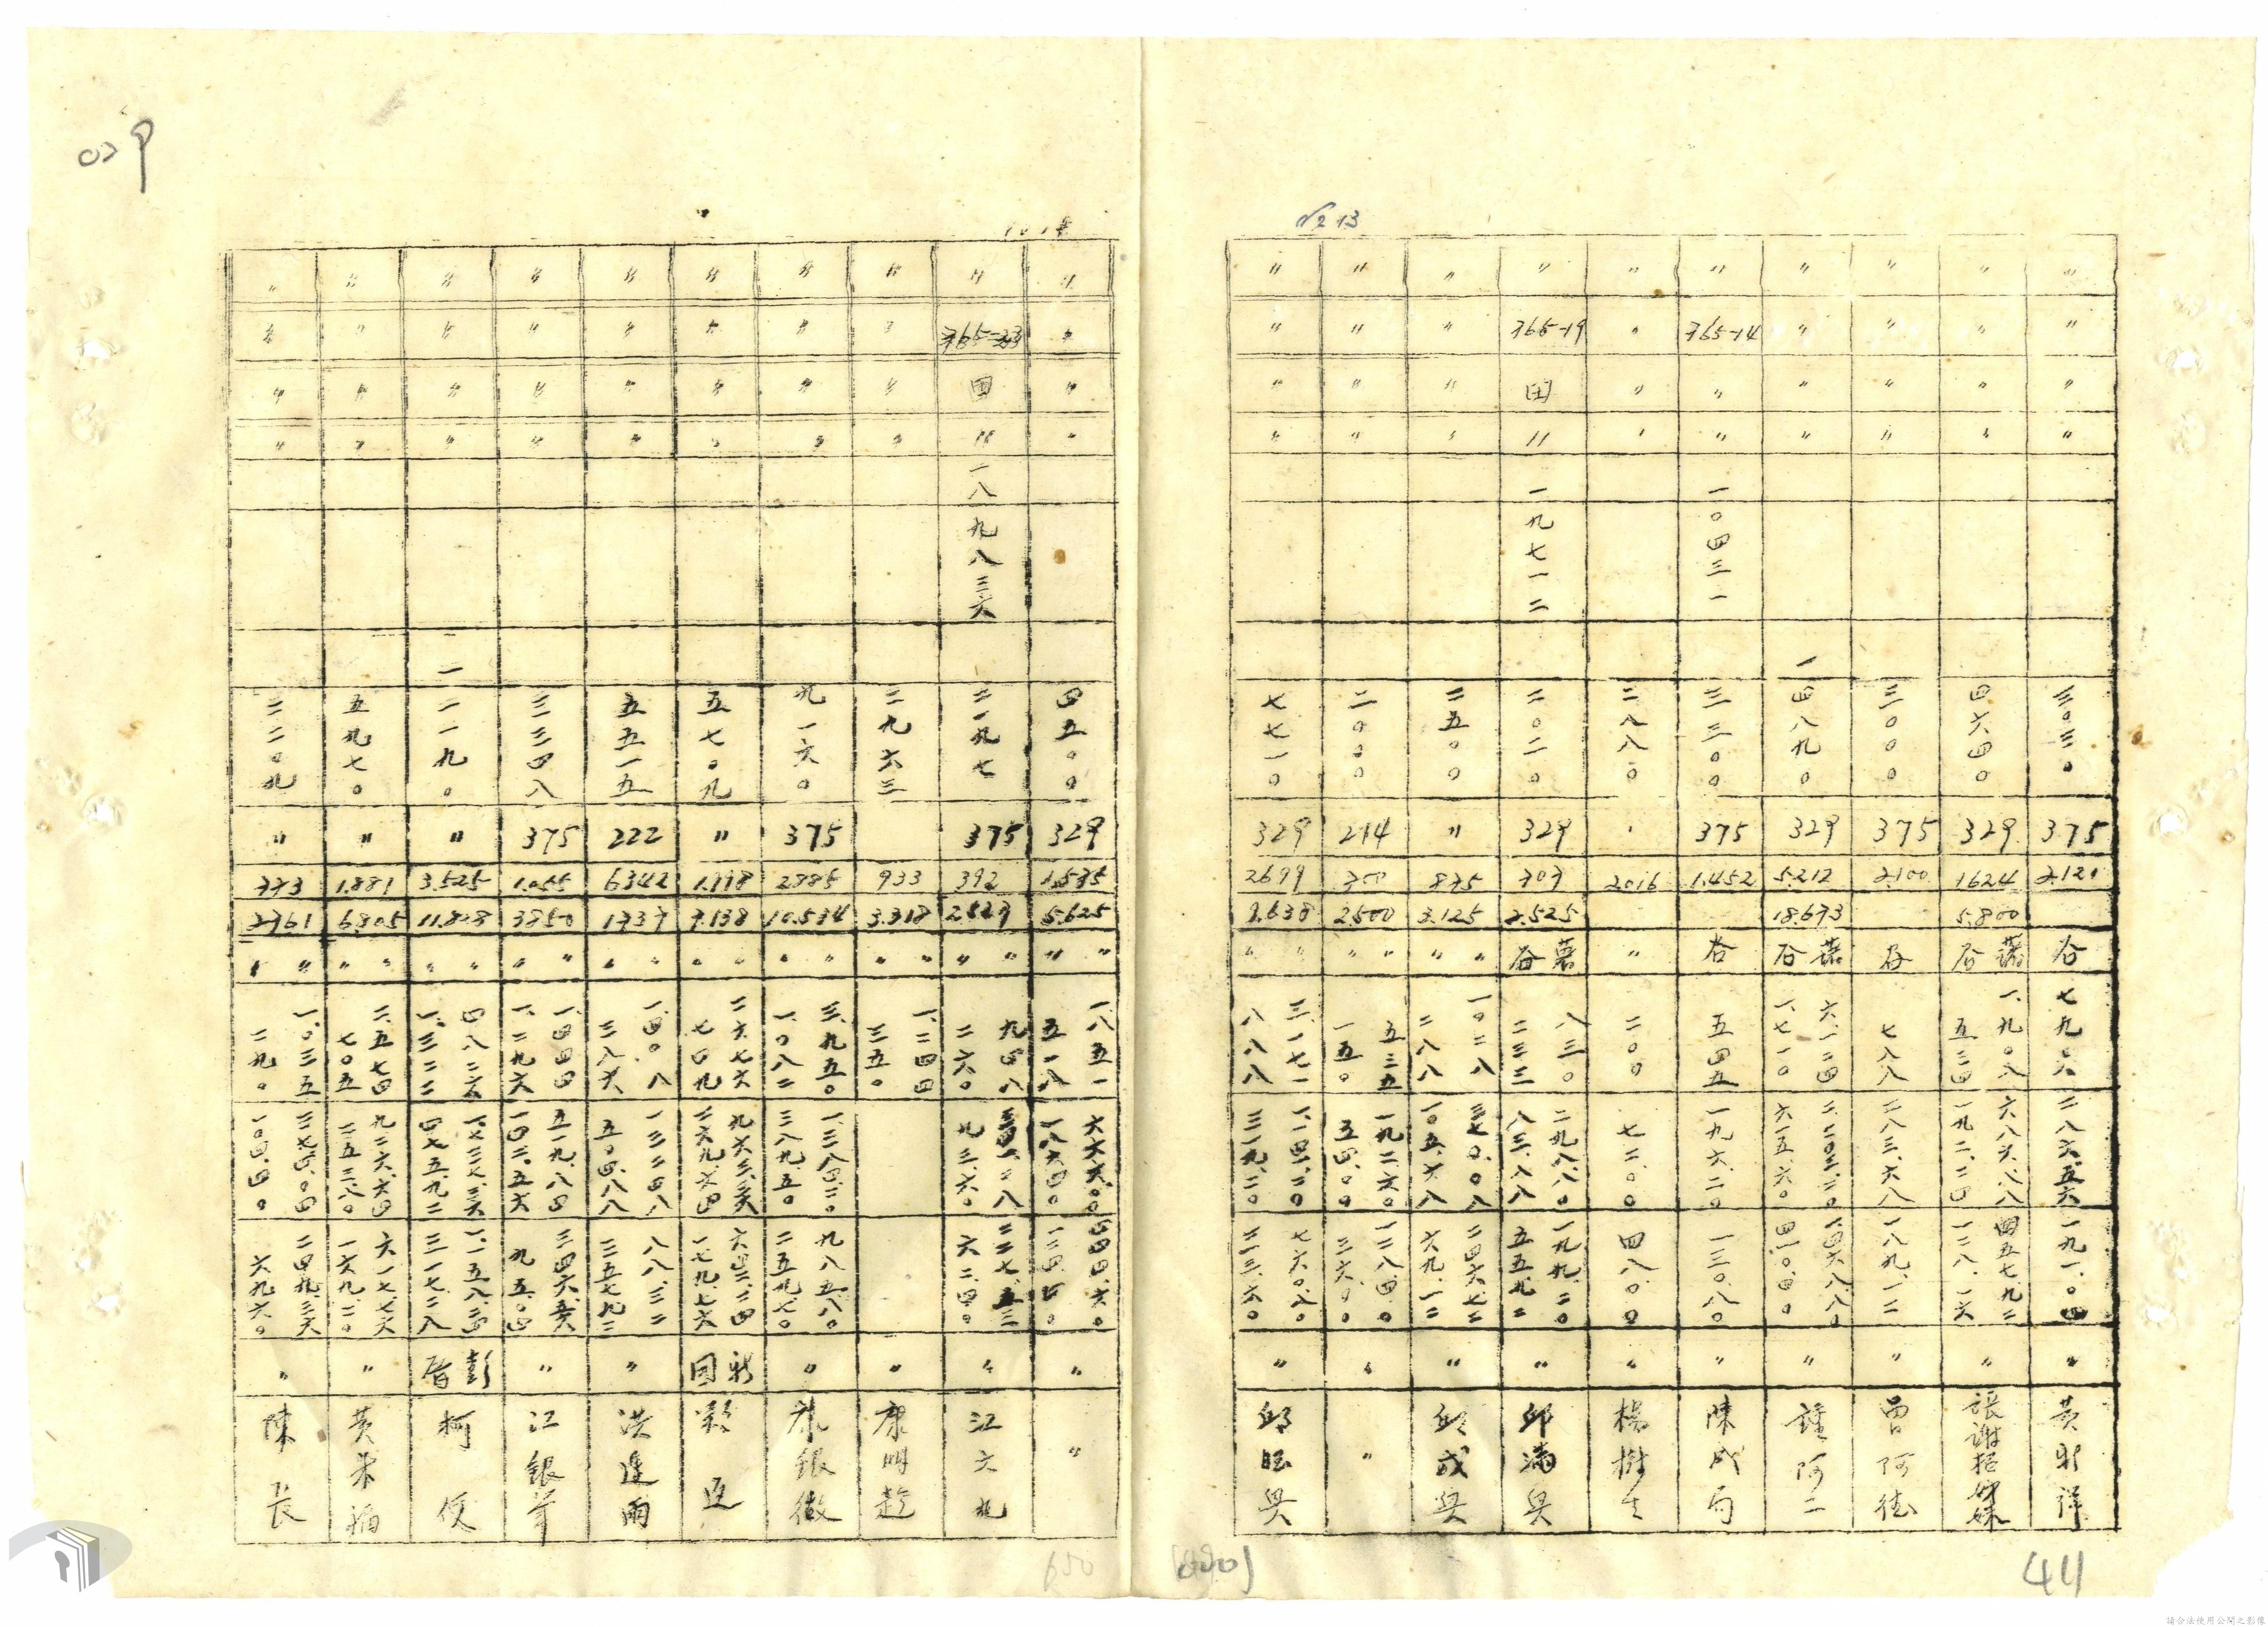 029
1014
√213
〃
〃
〃
〃
三〇三〇
375
2.120
谷
七九六
二八六.五六
一九一.〇四
〃
黃新祥
〃
〃
〃
〃
四六四〇
329
1624
5.800
藷
谷
一.九〇八
五三四
六八六.八八
一九二.二四
四五七.九二
一二八.一六
〃
〃
〃
〃
〃
三〇〇〇
375
2.100
谷
七八八
二八三.六八
一八九.一二
〃
曾阿德
〃
〃
〃
〃
一四八九〇
329
5.212
18.673
藷
谷
六.一二四
一.七一〇
二.二〇三.二〇
六一五.六〇
一.四六八.八〇
四一〇.四〇
〃
鍾阿二
〃
765-14
〃
〃
一〇四三一
三三〇〇
375
1.452
谷
五四五
一九六.二〇
一三〇.八〇
〃
陳成局
〃
〃
〃
〃
二八八〇
〃
2016
〃
二〇〇
七二.〇〇
四八.〇〇
〃
楊樹生
〃
765-19
田
〃
一九七一二
二〇二〇
329
707
2.525
藷
谷
八三〇
二三三
二九八.八〇
八三.八八
一九九.二〇
五五.九二
〃
邱滿興
〃
〃
〃
〃
二五〇〇
〃
875
3.125
〃 〃
一.〇二八
二八八
三七〇.〇八
一〇五.六八
二四六.七二
六九.一二
〃
邱成興
〃
〃
〃
〃
二〇〇〇
214
700
2.500
〃 〃
五三五
一五〇
一九二.六〇
五四.〇〇
一二八.四〇
三六.〇〇
〃
〃
〃
〃
〃
〃
七七一〇
329
2699
9.638
〃 〃
三.一七一
八八八
一.一四一.二〇
三一九.二〇
七六〇.八〇
二一三.六〇
〃
邱旺興
〃
〃
〃
〃
四五〇〇
329
1.575
5.625
〃 〃
一.八五一
五一八
六六六.〇〇
一八六.四〇
四四四.六〇
一二四.四〇
〃
〃
〃
765-23
田
〃
一八九八三六
二一九七
375
392
2.529
〃 〃
九四八
二六〇
三四一.二八
九三.六〇
二二七.五二
六二.四〇
〃
江六九
〃
〃
〃
〃
二九六三
933
3.318
〃 〃
一.二四四
三五〇
〃
康明趁
〃
〃
〃
〃
九一六〇
375
2885
10.534
〃 〃
三.九五〇
一.〇八二
一.三八四.二〇
三八九.五〇
九八五.八〇
二五九.七〇
〃
康銀徵
〃
〃
〃
〃
五七〇九
〃
1.998
7.138
〃 〃
二六七六
七四九
九六三.三六
二六九.六四
六四二.二四
一七九.七六
新
國
〃
〃
〃
〃
五五一五
222
6342
1737
〃 〃
一.四〇八
三八六
〃
洪逢雨
〃
〃
〃
〃
三三四八
375
1.055
3850
〃 〃
一.四四四
一.二九六
五一九.八四
一四二.五六
三四六.五六
九五.〇四
〃
江銀芽
〃
〃
〃
〃
一一一九〇
〃
3.525
11.828
〃 〃
四八二六
一.三二二
一.七三七.三六
四七五.九二
一.一五八.二四
三一七.二八
彭
厝
柯便
〃
〃
〃
〃
五九七〇
〃
1.881
6.805
〃 〃
二.五七四
七〇五
九二六.六四
二五三.八〇
六一七.七六
一六九.二〇
〃
〃
〃
〃
〃
二二〇九
〃
773
2761
〃 〃
一.〇三五
二九〇
三七四.〇四
一〇四.四〇
二四九.三六
六九.六〇
〃
陳長
650
411
請合法使用公開之影像